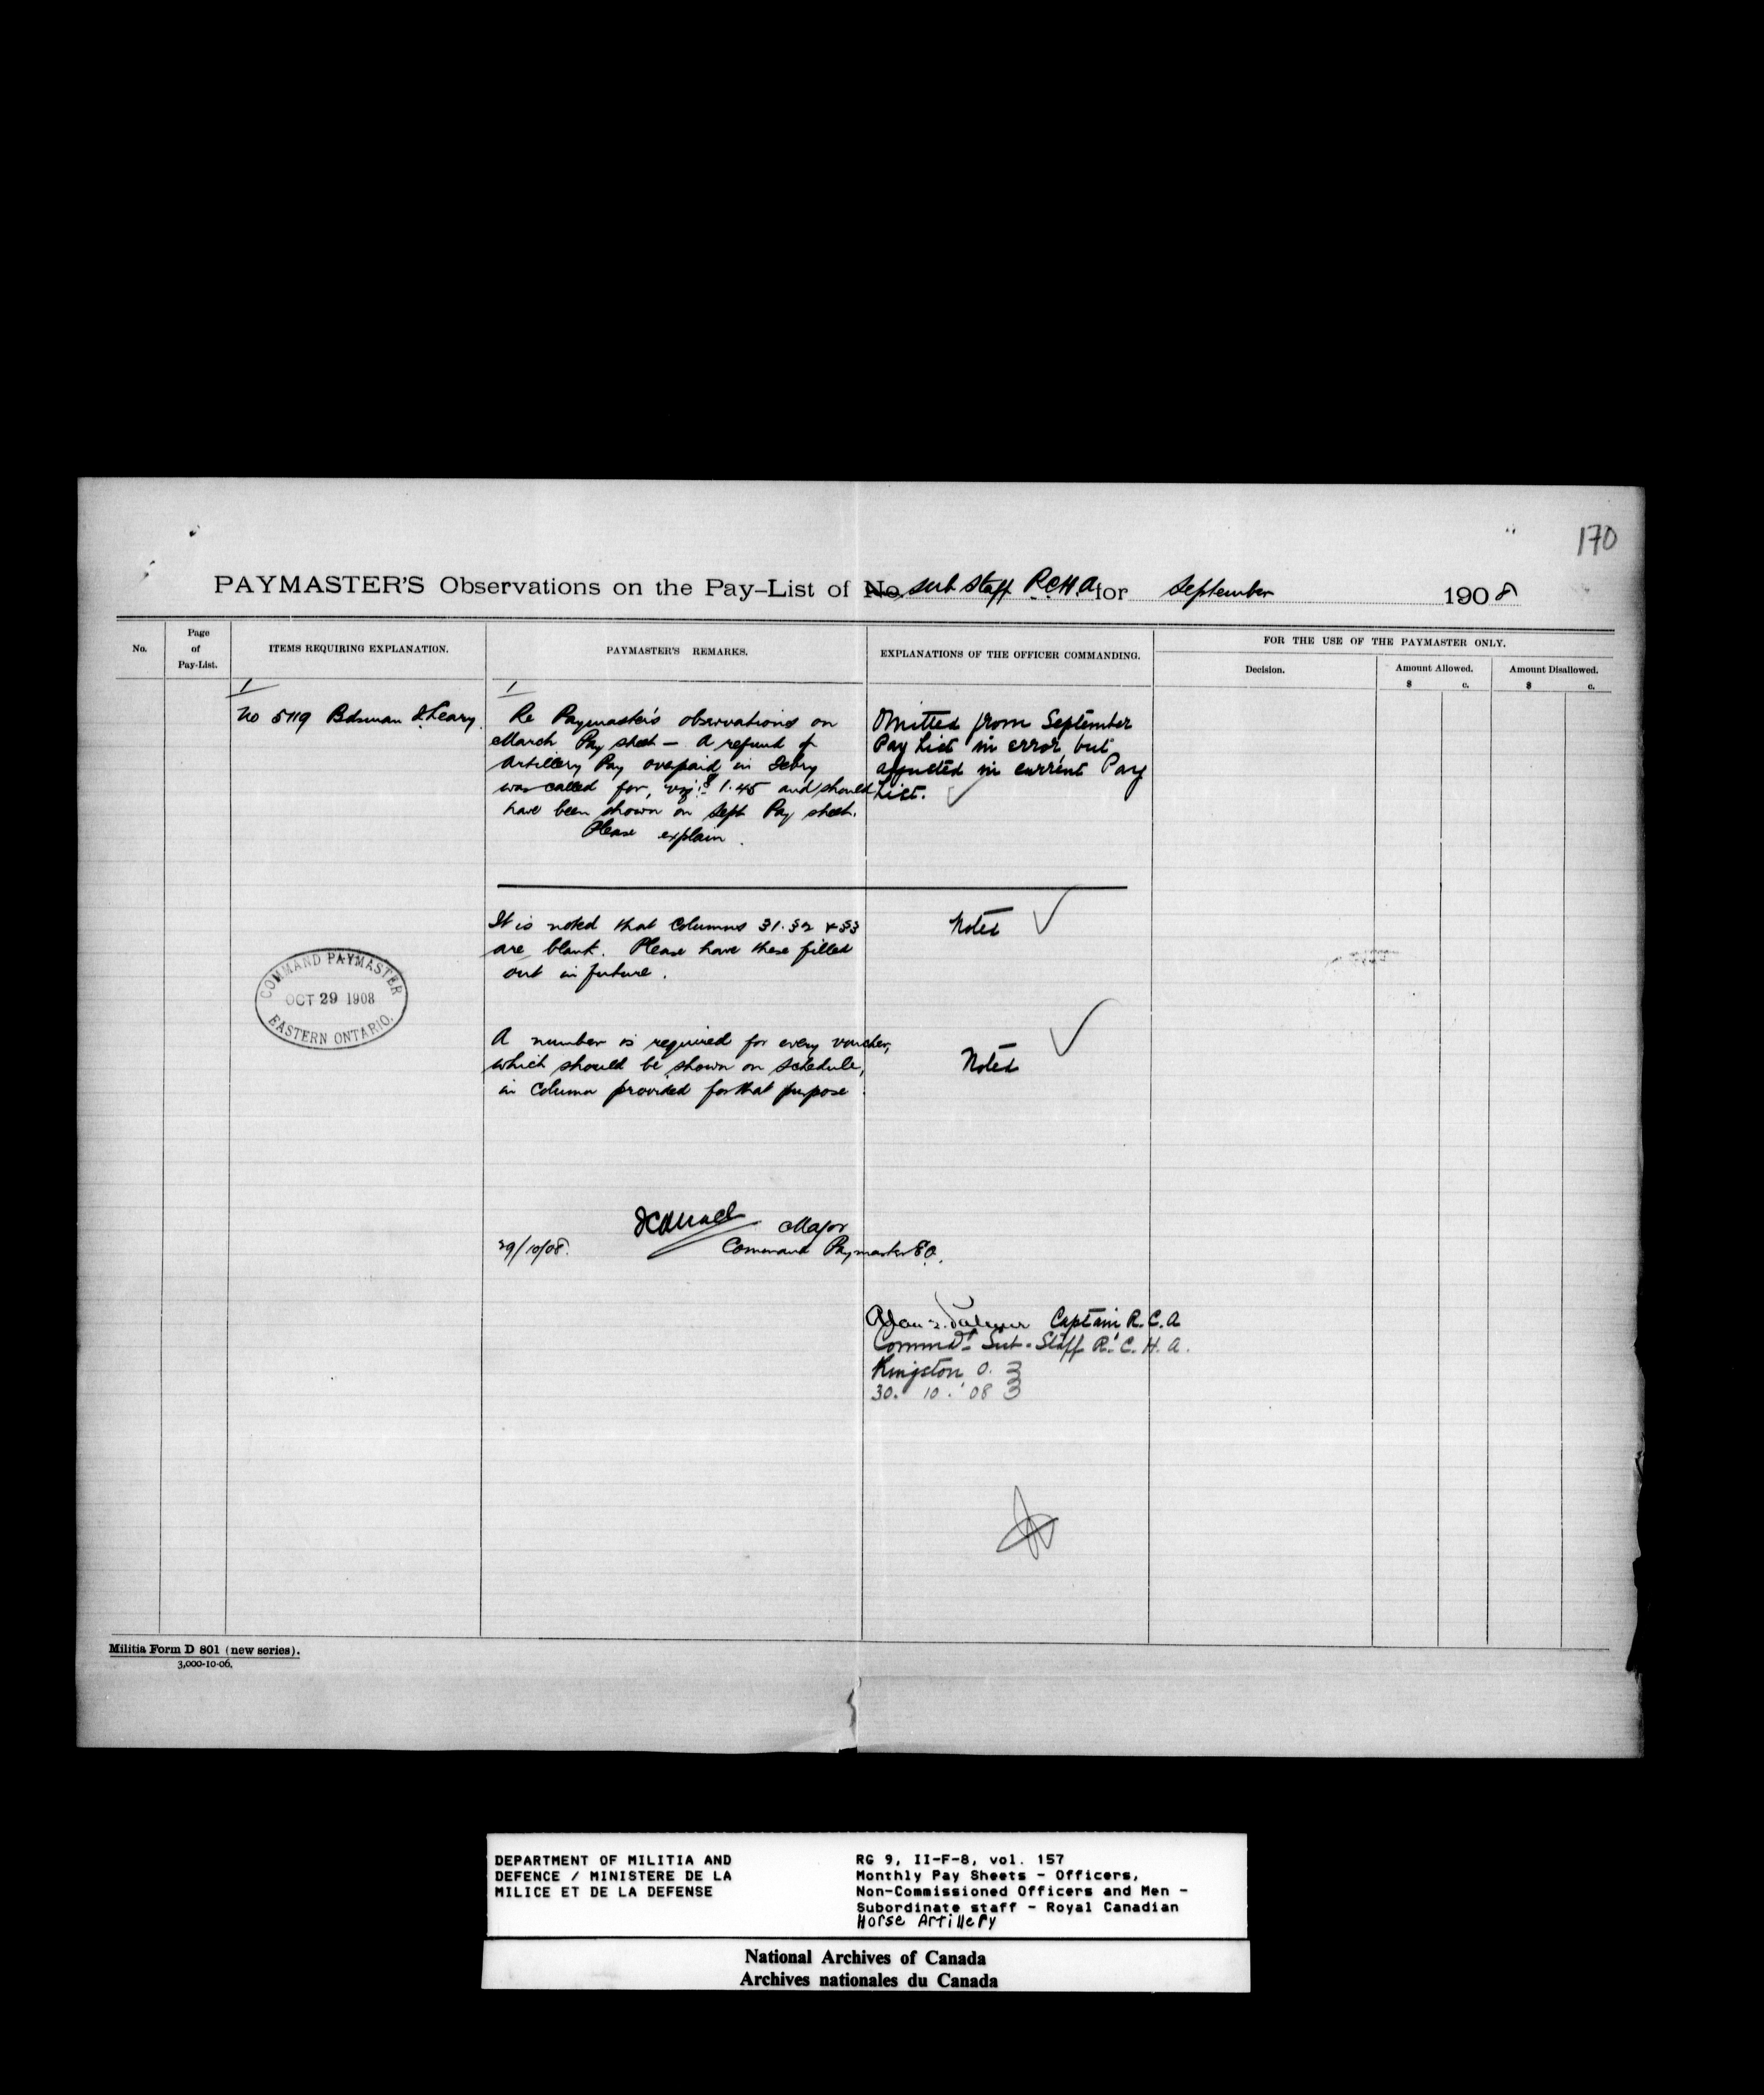 170
PAYMASTER'S Observations on the Pay-List of No. Sub Staff R.C.H.A. for September 1908
No.
Page
of
Pay-List.
ITEMS REQUIRING EXPLANATION.
PAYMASTER'S REMARKS.
EXPLANATIONS OF THE OFFICER COMMANDING.
FOR THE USE OF THE PAYMASTER ONLY.
Decision.
Amount Allowed.
$ c.
Amount Disallowed.
$ c.
1
No 5119 Bdsman Leary
1
Re Paymaster's observations on
March Pay sheet — A refund of
Artillery Pay overpaid in Febry
was called for, viz:- $1.45 and should
have been shown on Sept Pay sheet.
Please explain.
Omitted from September
Pay List in error but
adjusted in current Pay
List.
It is noted that columns 31. 32 & 33
are blank. Please have these filled
out in future.
Noted
COMMAND PAYMASTER
OCT 29 1908
EASTERN ONTARIO.
A number is required for every voucher,
which should be shown on schedule,
in column provided for that purpose.
Noted
Major
29/10/08. Command Paymaster E.O.
Captain R.C.A
Commdt Sub-Staff R.C.H.A.
Kingston O.
30. 10. '08
Militia Form D 801 (new series).
3,000-10-06.
DEPARTMENT OF MILITIA AND
DEFENCE / MINISTERE DE LA
MILICE ET DE LA DEFENSE
RG 9, II-F-8, vol. 157
Monthly Pay Sheets - Officers,
Non-Commissioned Officers and Men -
Subordinate staff - Royal Canadian
Horse Artillery
National Archives of Canada
Archives nationales du Canada